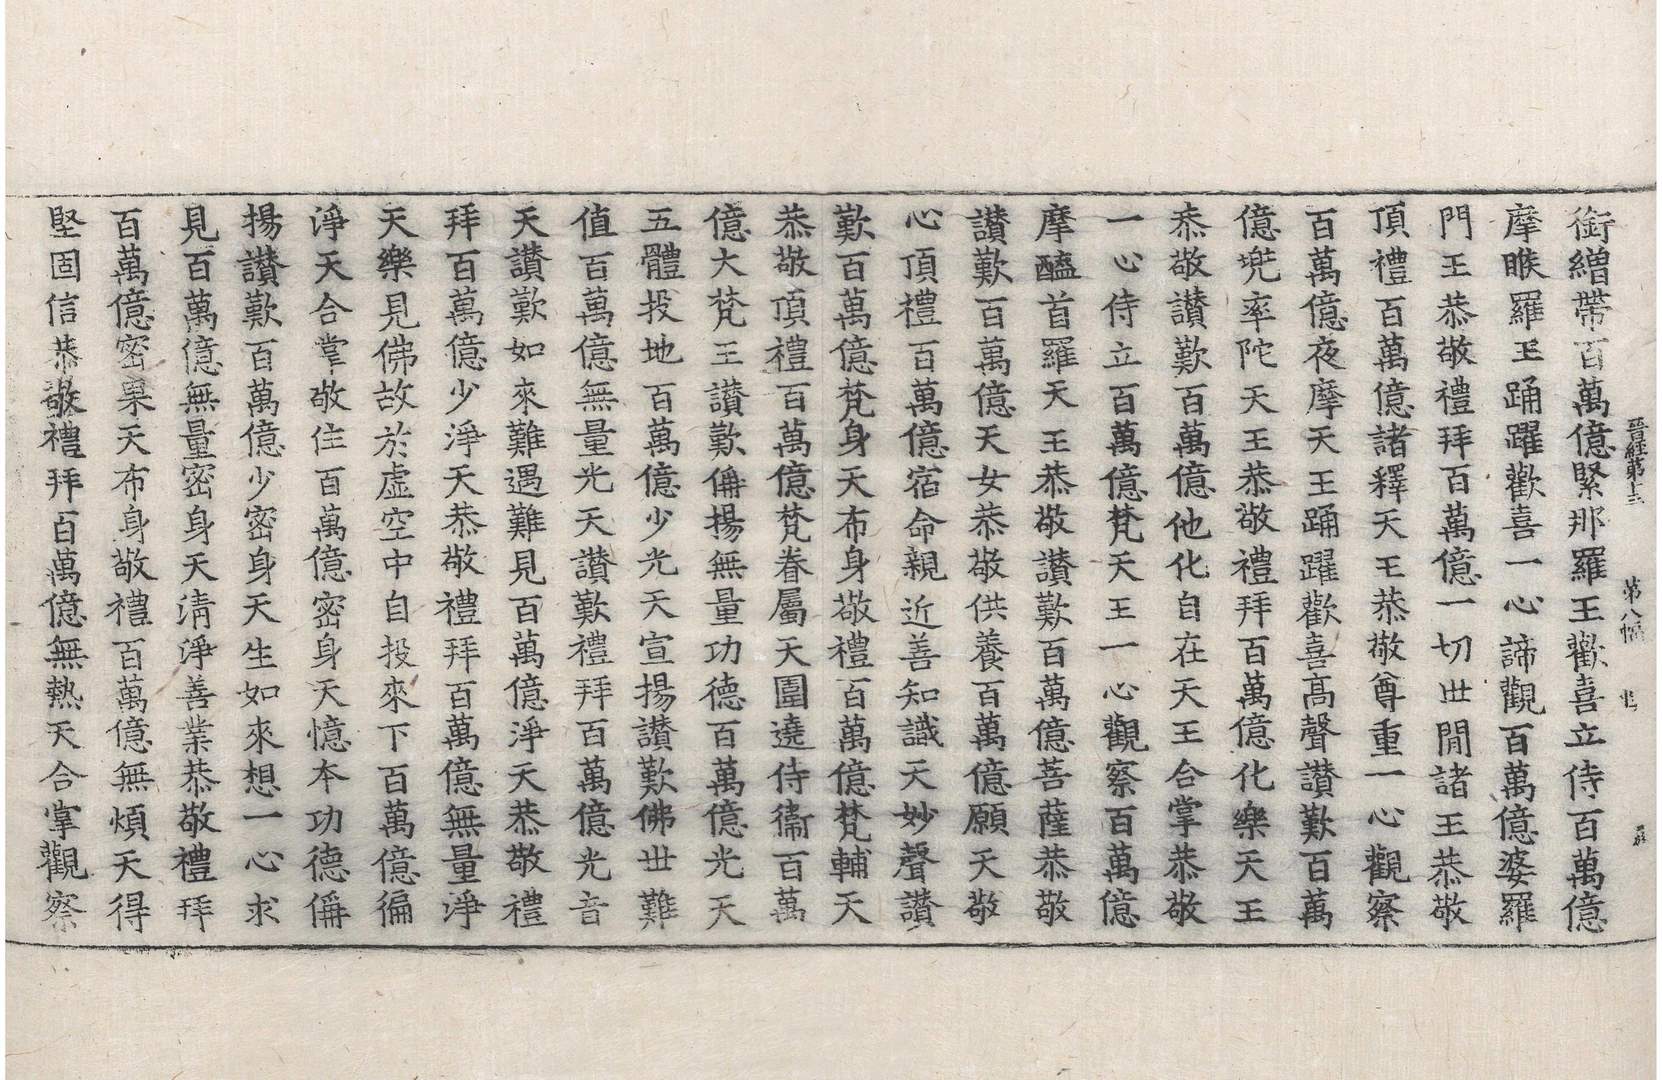 晉經第十三 第八幅
銜繒帶百萬億緊那羅王歡喜立侍百萬億
摩睺羅王踊躍歡喜一心諦觀百萬億婆羅
門王恭敬禮拜百萬億一切世閒諸王恭敬
頂禮百萬億諸釋天王恭敬尊重一心觀察
百萬億夜摩天王踊躍歡喜高聲讃歎百萬
億兜率陀天王恭敬禮拜百萬億化樂天王
恭敬讃歎百萬億他化自在天王合掌恭敬
一心侍立百萬億梵天王一心觀察百萬億
摩醯首羅天王恭敬讃歎百萬億菩薩恭敬
讃歎百萬億天女恭敬供養百萬億願天敬
心頂禮百萬億宿命親近善知識天妙聲讃
歎百萬億梵身天布身敬禮百萬億梵輔天
恭敬頂禮百萬億梵眷屬天圍遶侍衞百萬
億大梵王讃歎偁揚無量功德百萬億光天
五體投地百萬億少光天宣揚讃歎佛世難
值百萬億無量光天讃歎禮拜百萬億光音
天讃歎如來難遇難見百萬億淨天恭敬禮
拜百萬億少淨天恭敬禮拜百萬億無量淨
天樂見佛故於虛空中自投來下百萬億徧
淨天合掌敬住百萬億密身天憶本功德偁
揚讃歎百萬億少密身天生如來想一心求
見百萬億無量密身天清淨善業恭敬禮拜
百萬億密果天布身敬禮百萬億無煩天得
堅固信恭敬禮拜百萬億無熱天合掌觀察